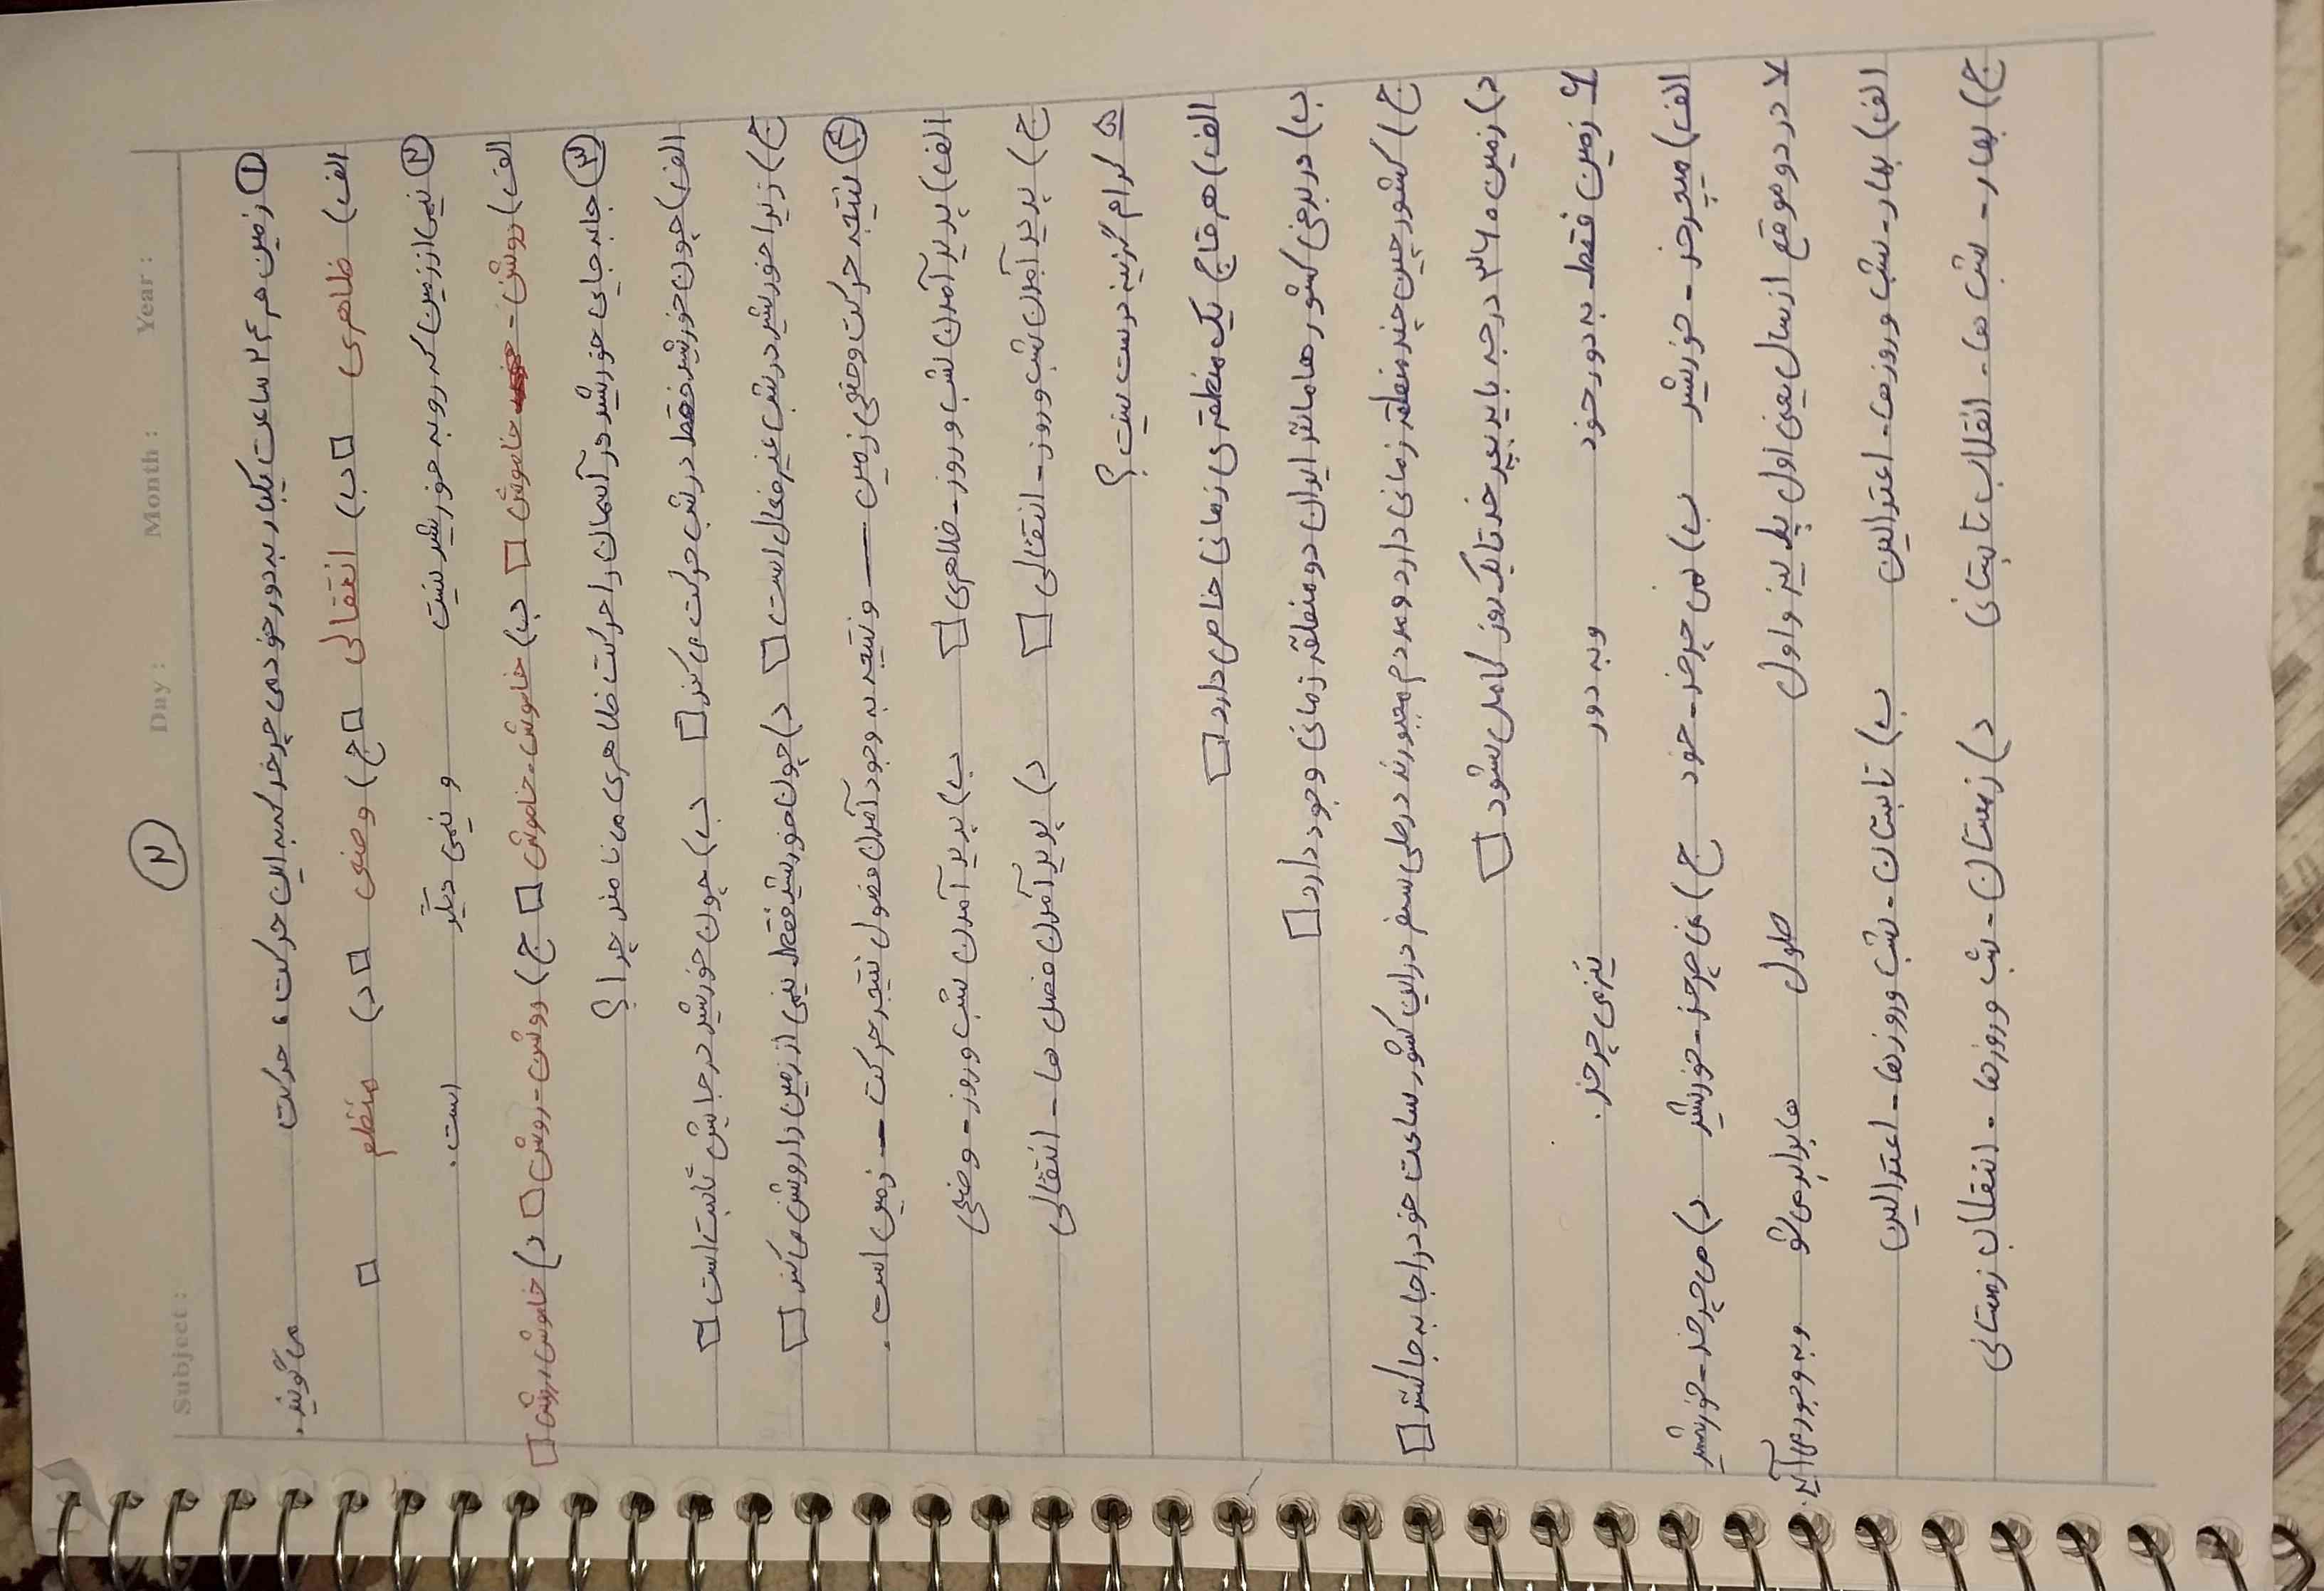 Subject :    Day :    Month :    Year :
۲
① زمین هر ۲۴ ساعت یکبار به دور خود می چرخد که به این حرکت، حرکت می گویند.
الف) ظاهری □ ب) انتقالی □ ج) وضعی □ د) منظم □
② نیمی از زمین که رو به خورشید نیست و نیمی دیگر است.
الف) روشن - خاموش □ ب) خاموش - خاموش □ ج) روشن - روشن □ د) خاموش روشن □
③ جابه جایی خورشید در آسمان را حرکت ظاهری می نامند چرا؟
الف) چون خورشید فقط در شب حرکت می کند □ ب) چون خورشید در جایش ثابت است □
ج) زیرا خورشید در شب غیر فعال است □ د) چون خورشید فقط نیمی از زمین را روشن می کند □
④ نتیجه حرکت وضعی زمین — و نتیجه به وجود آمدن فصول نتیجه حرکت — زمین است.
الف) پدید آمدن شب و روز - ظاهری □ ب) پدید آمدن شب و روز - وضعی
ج) پدید آمدن شب و روز - انتقالی □ د) پدید آمدن فصل ها - انتقالی
۵ کدام گزینه درست نیست؟
الف) هر قاچ یک منطقه ی زمانی خاص دارد □
ب) در برخی کشور ها مانند ایران دو منطقه زمانی وجود دارد □
ج) کشور چین چند منطقه زمانی دارد و مردم مجبورند در طی سفر در این کشور ساعت خود را جا به جا کنند □
د) زمین ۳۶۰ درجه باید بچرخد تا یک روز کامل شود □
۶ زمین فقط به دور خود و به دور نیز می چرخد.
الف) میچرخد - خورشید ب) نمی چرخد - خود ج) می چرخد - خورشید د) می چرخد - خورشید
۷ در دو موقع از سال یعنی اول پاییز و اول طول ها برابر می شو و به وجود می آید.
الف) بهار - شب و روز ها - اعتدالین ب) تابستان - شب و روز ها - اعتدالین
ج) بهار - شب ها - انقلاب تابستانی د) زمستان - شب و روزها - انقلاب زمستانی